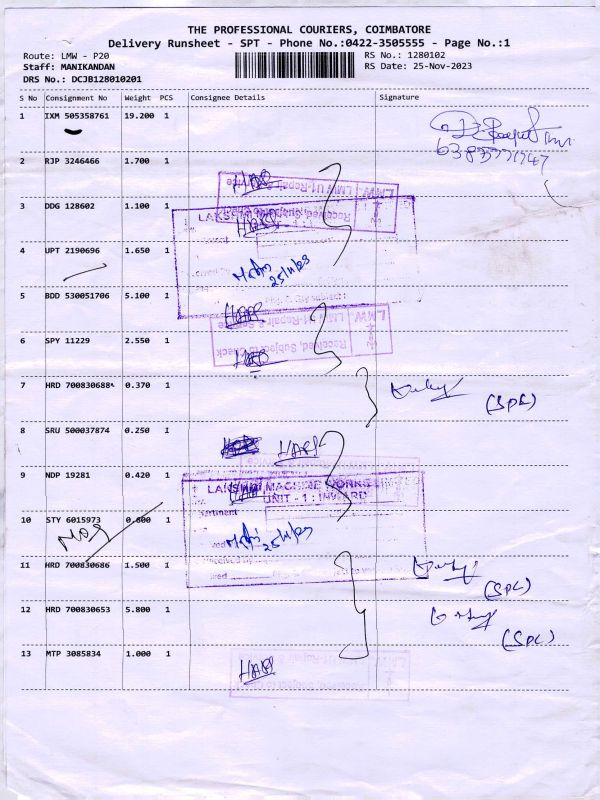 THE PROFESSIONAL COURIERS, COIMBATORE
Delivery Runsheet - SPT - Phone No.:0422-3505555 - Page No.:1
Route: LMW - P20
Staff: MANIKANDAN
DRS No.: DCJB128010201
RS No.: 1280102
RS Date: 25-Nov-2023
S No Consignment No Weight PCS Consignee Details Signature
1 IXM 505358761 19.200 1
2 RJP 3246466 1.700 1
LMW U1-Repair & Service
Received, Subject to Check
3 DDG 128602 1.100 1
4 UPT 2190696 1.650 1
25/11/23
5 BDD 530051706 5.100 1
LMW U1-Repair & Service
Received, Subject to Check
6 SPY 11229 2.550 1
7 HRD 700830688 0.370 1
(SPL)
8 SRU 500037874 0.250 1
9 NDP 19281 0.420 1
LAKSHMI MACHINE WORKS LIMITED
UNIT - 1 : INWARD
10 STY 6015973 0.800 1
25/11/23
11 HRD 700830686 1.500 1
(SPL)
12 HRD 700830653 5.800 1
(SPL)
13 MTP 3085834 1.000 1